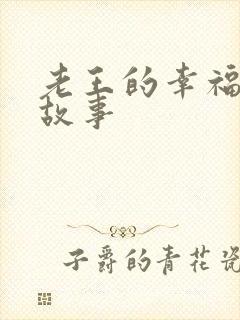 老王的幸福
故事
子爵的青花瓷